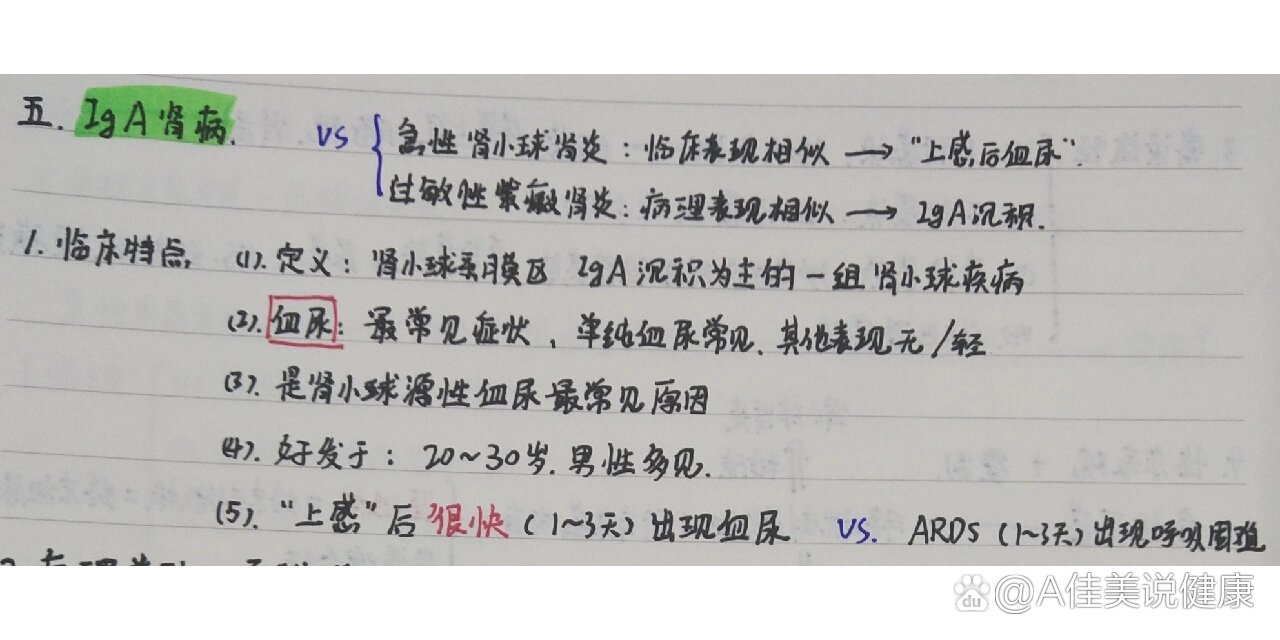 五. IgA肾病. VS { 急性肾小球肾炎：临床表现相似 → "上感后血尿".
过敏性紫癜肾炎：病理表现相似 → IgA沉积.
1. 临床特点 (1). 定义：肾小球系膜区 IgA沉积为主的一组肾小球疾病
(2). 血尿：最常见症状，单纯血尿常见、其他表现无/轻
(3). 是肾小球源性血尿最常见原因
(4). 好发于：20~30岁. 男性多见.
(5). "上感"后很快（1~3天）出现血尿 VS. ARDS（1~3天）出现呼吸困难
du @A佳美说健康